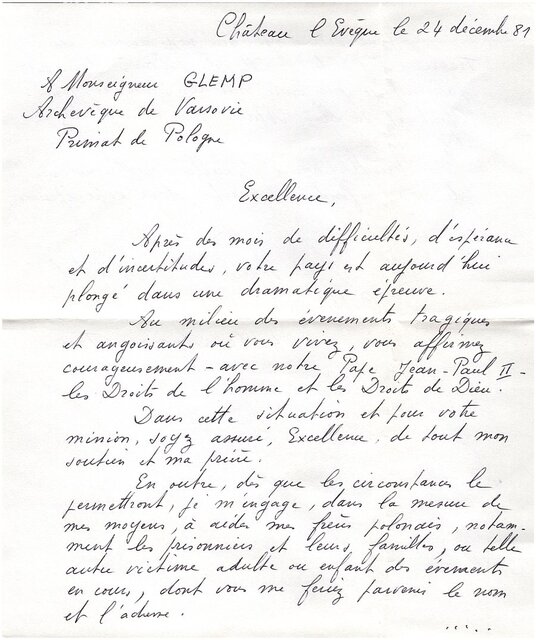 Château l'Evêque le 24 décembre 81
A Monseigneur GLEMP
Archevêque de Varsovie
Primat de Pologne
Excellence,
Après des mois de difficultés, d'espérance
et d'incertitudes, votre pays est aujourd'hui
plongé dans une dramatique épreuve.
Au milieu des évènements tragiques
et angoissants où vous vivez, vous affirmez
courageusement - avec notre Pape Jean-Paul II -
les Droits de l'homme et les Droits de Dieu.
Dans cette situation et pour votre
mission, soyez assuré, Excellence, de tout mon
soutien et ma prière.
En outre, dès que les circonstances le
permettront, je m'engage, dans la mesure de
mes moyens, à aider mes frères polonais, notam-
ment les prisonniers et leurs familles, ou telle
autre victime adulte ou enfant des évènements
en cours, dont vous me feriez parvenir le nom
et l'adresse.
.....